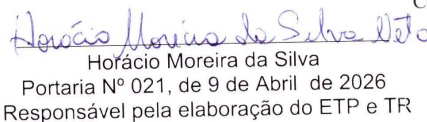 Horácio Moreira da Silva Neto
Horácio Moreira da Silva
Portaria Nº 021, de 9 de Abril de 2026
Responsável pela elaboração do ETP e TR